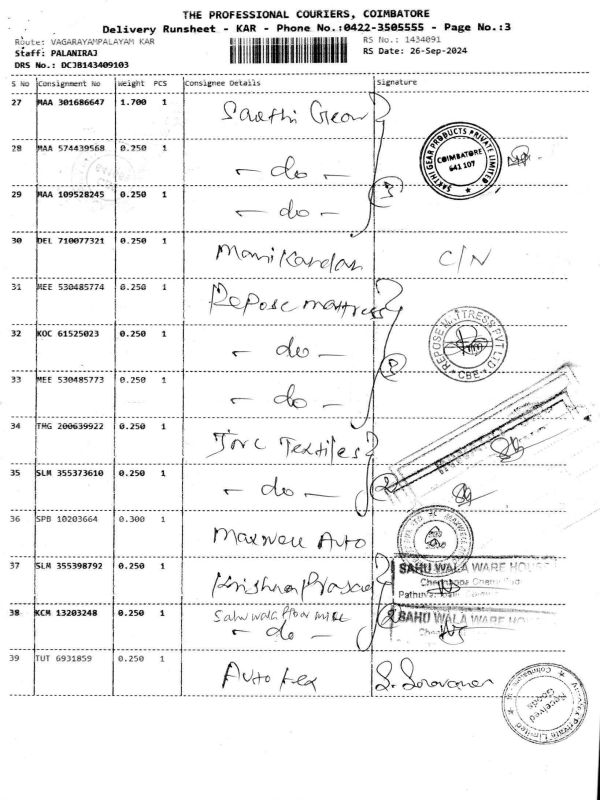 THE PROFESSIONAL COURIERS, COIMBATORE
Delivery Runsheet - KAR - Phone No.:0422-3505555 - Page No.:3
Route: VAGARAYAMPALAYAM KAR RS No.: 1434091
Staff: PALANIRAJ RS Date: 26-Sep-2024
DRS No.: DCJB143409103
S No Consignment No Weight PCS Consignee Details Signature
27 MAA 301686647 1.700 1 Sakthi Gear
28 MAA 574439568 0.250 1 - do -
SAKTHI GEAR PRODUCTS PRIVATE LIMITED
COIMBATORE
641 107
29 MAA 109528245 0.250 1 - do -
3
30 DEL 710077321 0.250 1 Manikandan C/N
31 MEE 530485774 0.250 1 Repose mattress
32 KOC 61525023 0.250 1 - do -
REPOSE MATTRESS PVT LTD
CBE
33 MEE 530485773 0.250 1 - do -
34 TMG 200639922 0.250 1 Textiles
35 SLM 355373610 0.250 1 - do -
2
36 SPB 10203664 0.300 1 Maxwell Auto
37 SLM 355398792 0.250 1 Krishna Prasad
SAHU WALA WARE HOUSE
38 KCM 13203248 0.250 1 Sahuwala flour mill
- do -
2
SAHU WALA WARE HOUSE
39 TUT 6931859 0.250 1 Auto tex S. Saravanan
Received
Goods
Private Limited